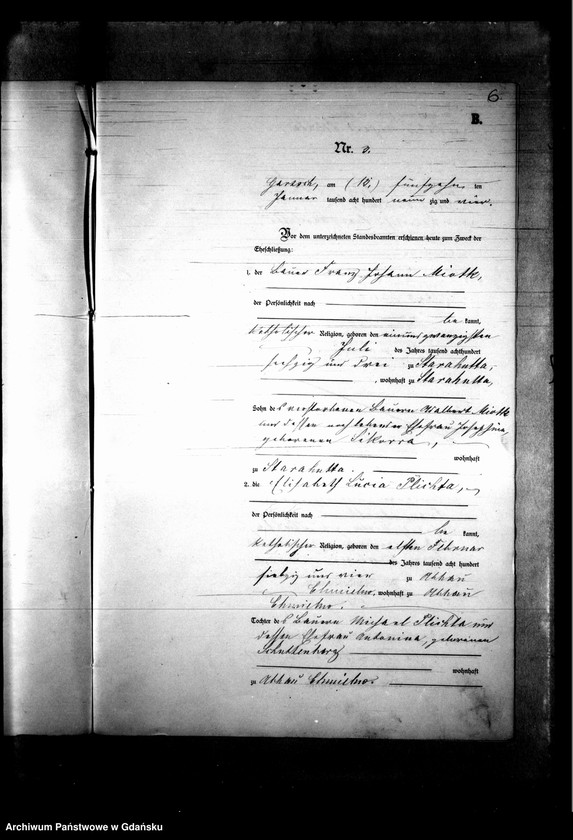 6
B.
Nr. 3.
am (15.) fünfzehn ten
Januar tausend acht hundert neun zig und vier.
Vor dem unterzeichneten Standesbeamten erschienen heute zum Zweck der
Eheschließung:
1. der Bauer Franz Johann Miotk,
der Persönlichkeit nach
be kannt,
katholischer Religion, geboren den einundzwanzigsten
Juli des Jahres tausend achthundert
sechzig und drei zu Starahutta,
, wohnhaft zu Starahutta,
Sohn des verstorbenen Bauern Miotk
und dessen noch lebender Ehefrau Josephina
geborenen Sikorra,
wohnhaft
zu Starahutta.
2. die Elisabeth Lucia Plichta,
der Persönlichkeit nach
be kannt,
katholischer Religion, geboren den elften Februar
des Jahres tausend acht hundert
siebzig und vier zu Abbau
Chmielno, wohnhaft zu Abbau
Chmielno.
Tochter des Bauern Michael Plichta und
dessen Ehefrau Antonina, geborenen
wohnhaft
zu Abbau Chmielno.
Archiwum Państwowe w Gdańsku